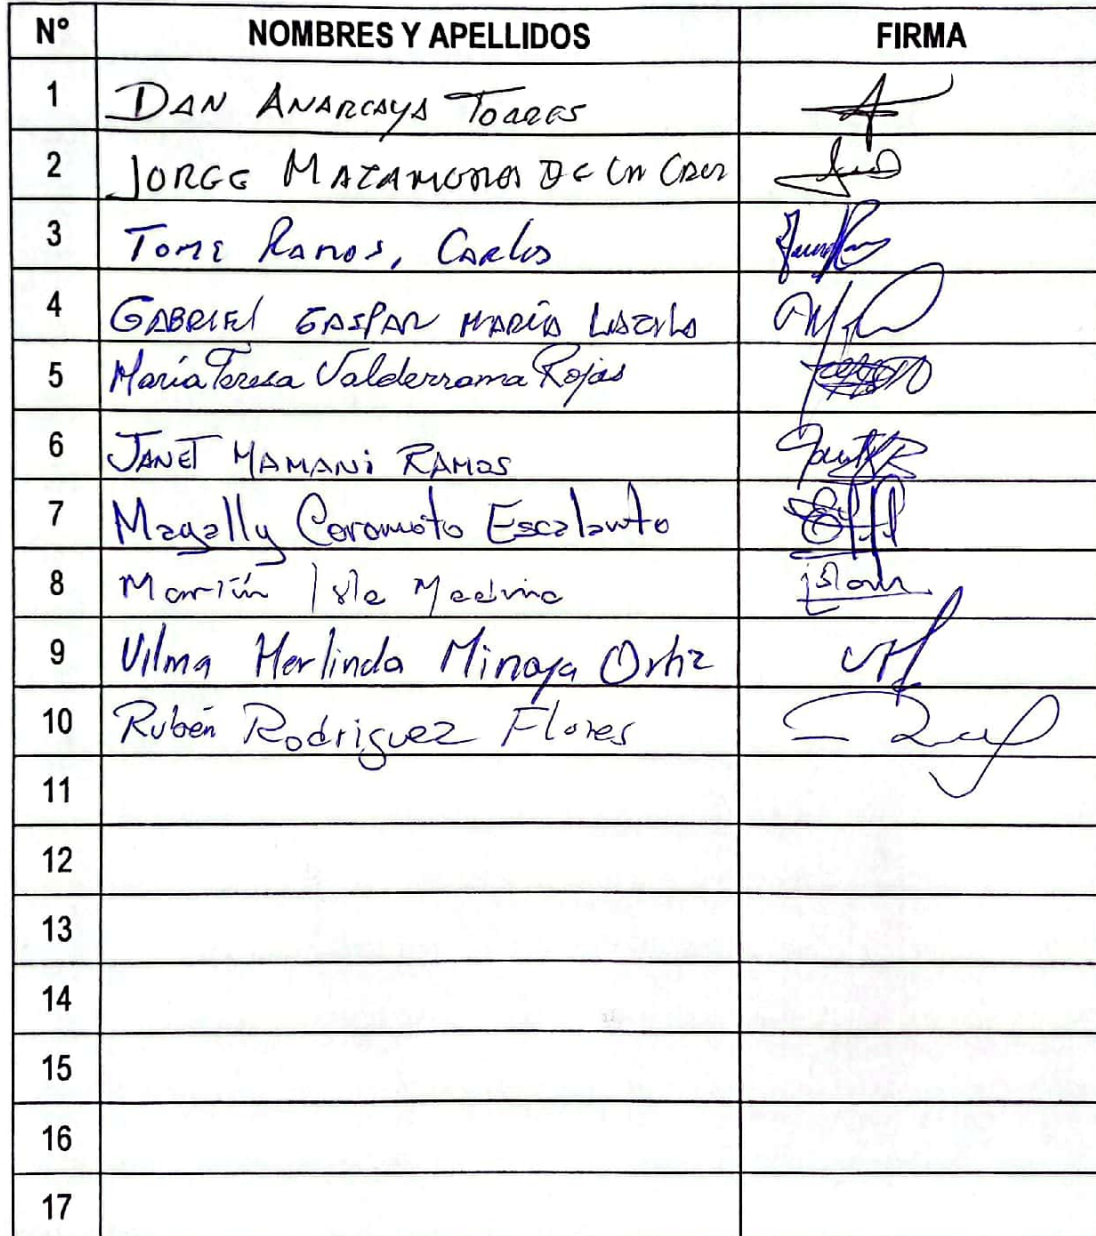 N° NOMBRES Y APELLIDOS FIRMA
1 DAN ANARCAYA TORRES
2 JORGE MATAMOROS DE LA CRUZ
3 TOME RAMOS, CARLOS
4 GABRIEL GASPAR MARÍA
5 María Teresa Valderrama Rojas
6 JANET MAMANi RAMOS
7 Magally Coromoto Escalante
8 Martín Isla Medina
9 Vilma Herlinda Minaya Ortiz
10 Rubén Rodriguez Flores
11
12
13
14
15
16
17